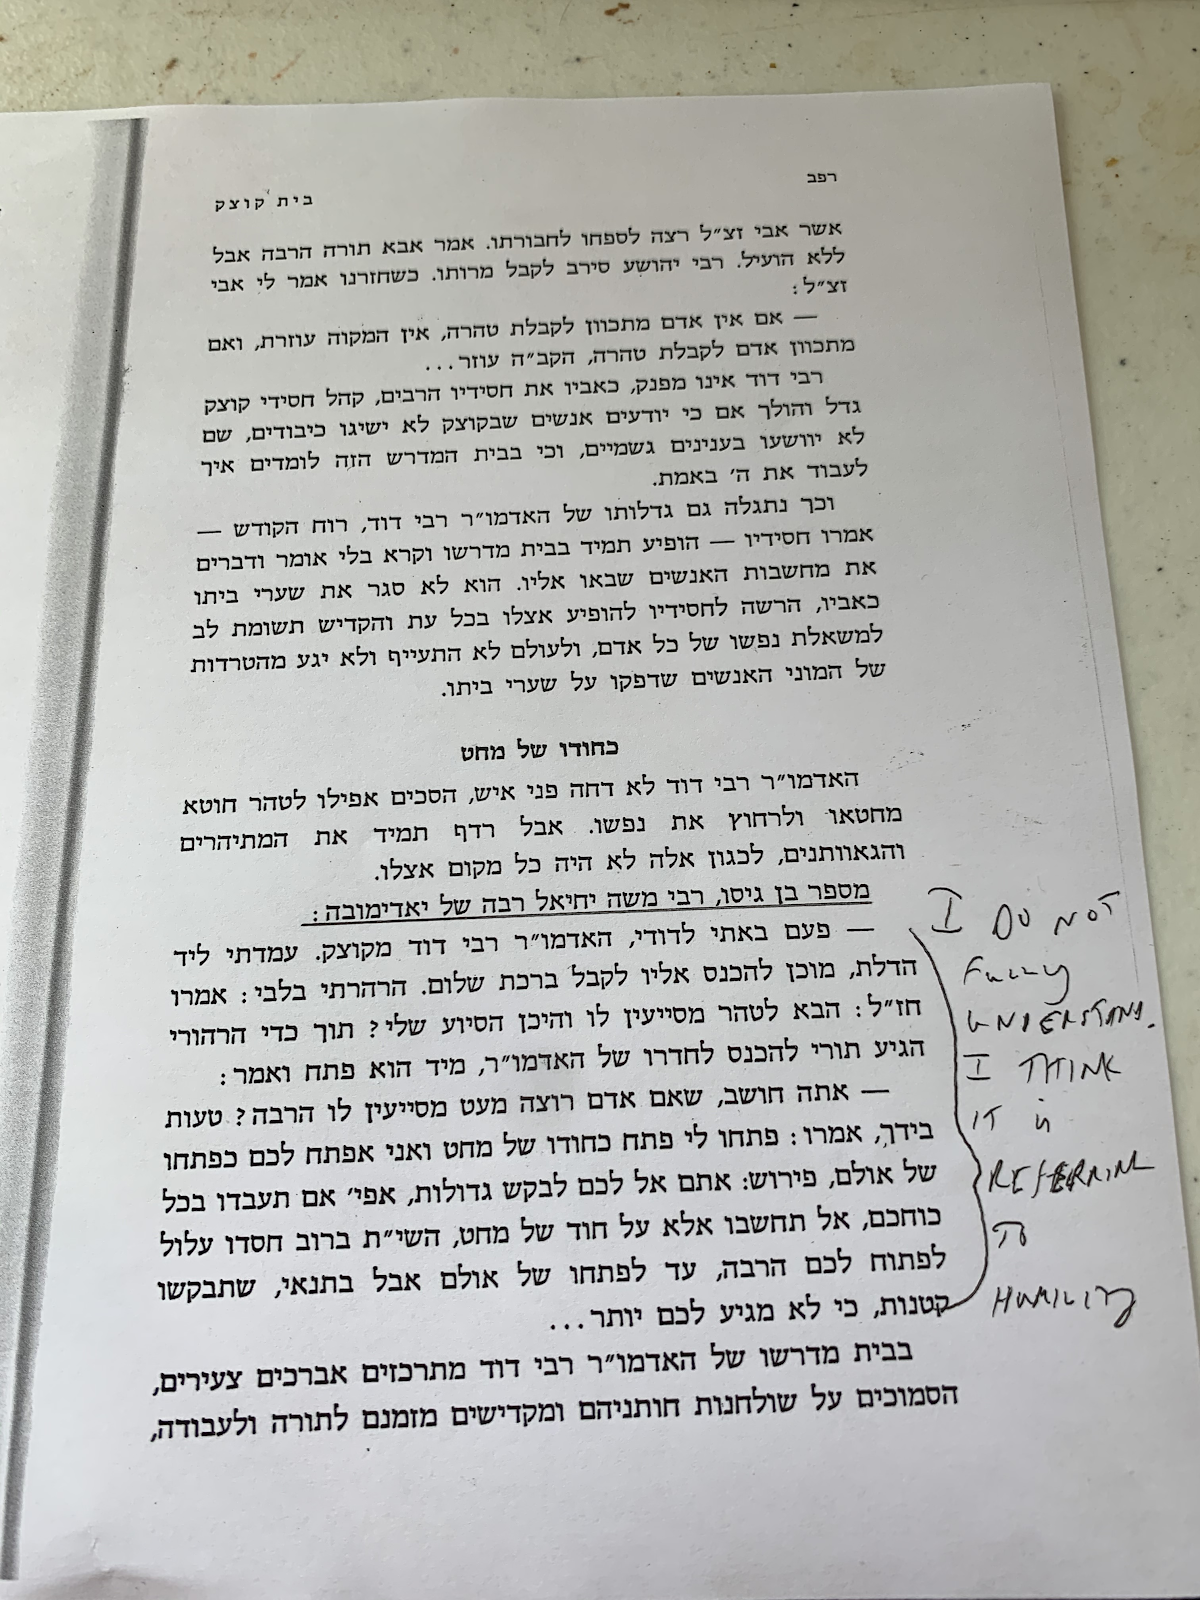 רפב
בית קוצק
אשר אבי זצ״ל רצה לספחו לחבורתו. אמר אבא תורה הרבה אבל
ללא הועיל. רבי יהושע סירב לקבל מרותו. כשחזרנו אמר לי אבי
זצ״ל :
— אם אין אדם מתכוון לקבלת טהרה, אין המקוה עוזרת, ואם
מתכוון אדם לקבלת טהרה, הקב״ה עוזר...
רבי דוד אינו מפנק, כאביו את חסידיו הרבים, קהל חסידי קוצק
גדל והולך אם כי יודעים אנשים שבקוצק לא ישיגו כיבודים, שם
לא יוושעו בענינים גשמיים, וכי בבית המדרש הזה לומדים איך
לעבוד את ה׳ באמת.
וכך נתגלה גם גדלותו של האדמו״ר רבי דוד, רוח הקודש —
אמרו חסידיו — הופיע תמיד בבית מדרשו וקרא בלי אומר ודברים
את מחשבות האנשים שבאו אליו. הוא לא סגר את שערי ביתו
כאביו, הרשה לחסידיו להופיע אצלו בכל עת והקדיש תשומת לב
למשאלת נפשו של כל אדם, ולעולם לא התעייף ולא יגע מהטרדות
של המוני האנשים שדפקו על שערי ביתו.
כחודו של מחט
האדמו״ר רבי דוד לא דחה פני איש, הסכים אפילו לטהר חוטא
מחטאו ולרחוץ את נפשו. אבל רדף תמיד את המתיהרים
והגאוותנים, לכגון אלה לא היה כל מקום אצלו.
מספר בן גיסו, רבי משה יחיאל רבה של יאדימובה :
— פעם באתי לדודי, האדמו״ר רבי דוד מקוצק. עמדתי ליד
הדלת, מוכן להכנס אליו לקבל ברכת שלום. הרהרתי בלבי : אמרו
חז״ל : הבא לטהר מסייעין לו והיכן הסיוע שלי? תוך כדי הרהורי
הגיע תורי להכנס לחדרו של האדמו״ר, מיד הוא פתח ואמר :
— אתה חושב, שאם אדם רוצה מעט מסייעין לו הרבה? טעות
בידך, אמרו : פתחו לי פתח כחודו של מחט ואני אפתח לכם כפתחו
של אולם, פירוש: אתם אל לכם לבקש גדולות, אפי׳ אם תעבדו בכל
כוחכם, אל תחשבו אלא על חוד של מחט, השי״ת ברוב חסדו עלול
לפתוח לכם הרבה, עד לפתחו של אולם אבל בתנאי, שתבקשו
קטנות, כי לא מגיע לכם יותר...
בבית מדרשו של האדמו״ר רבי דוד מתרכזים אברכים צעירים,
הסמוכים על שולחנות חותניהם ומקדישים מזמנם לתורה ולעבודה,
I DO NOT
FULLY
UNDERSTAND.
I THINK
IT is
REFERRING
TO
HUMILITY